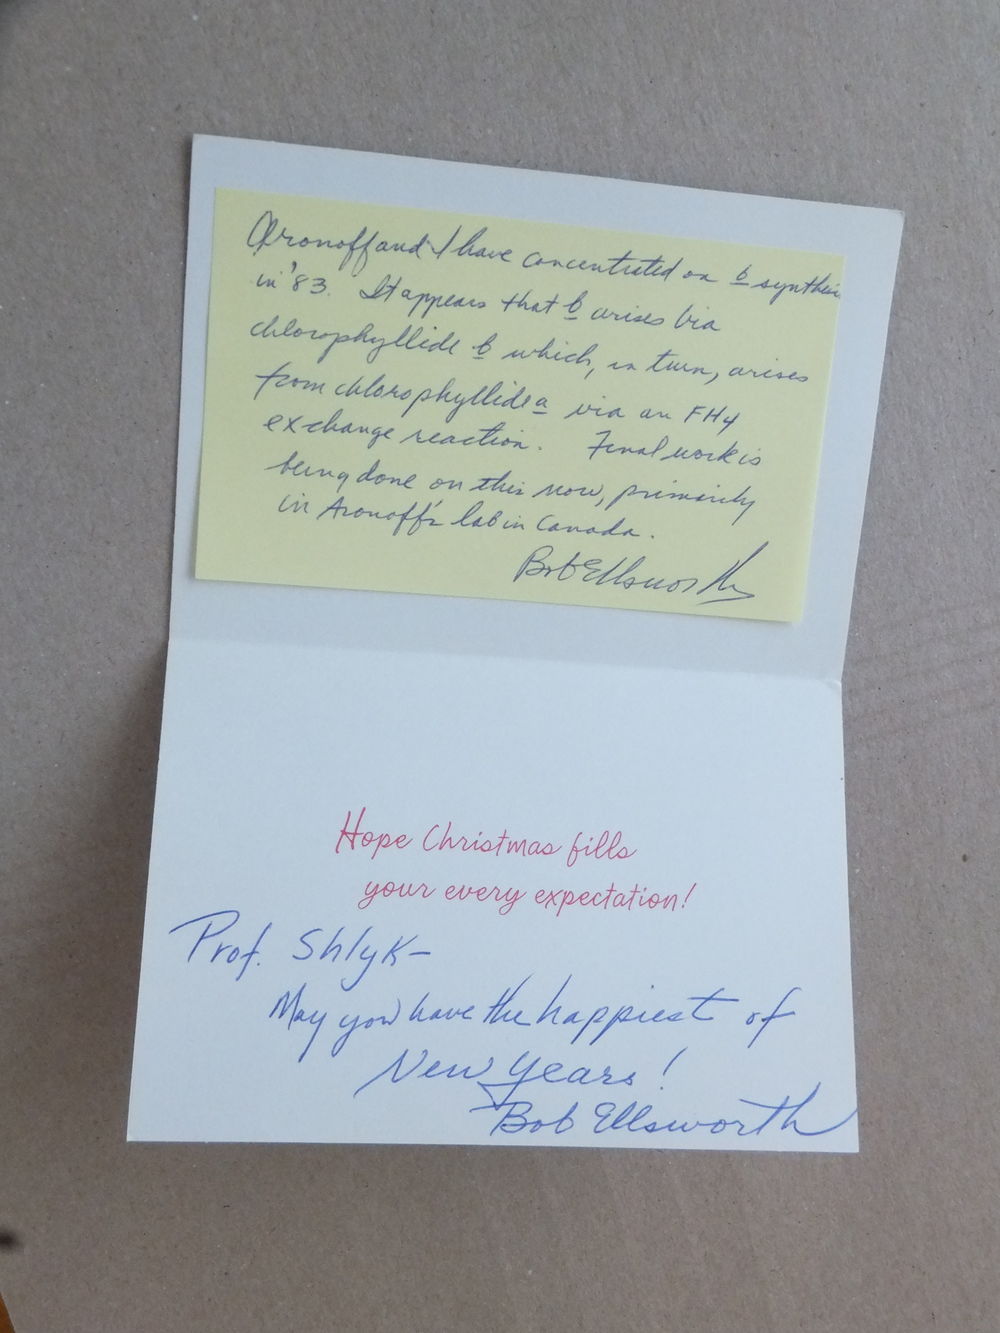 Aronoff and I have concentrated on b synthesis
in '83. It appears that b arises via
chlorophyllide b which, in turn, arises
from chlorophyllide a via an FH4
exchange reaction. Final work is
being done on this now, primarily
in Aronoff's lab in Canada.
Bob Ellsworth
Hope Christmas fills
your every expectation!
Prof. Shlyk-
May you have the happiest of
New Years!
Bob Ellsworth